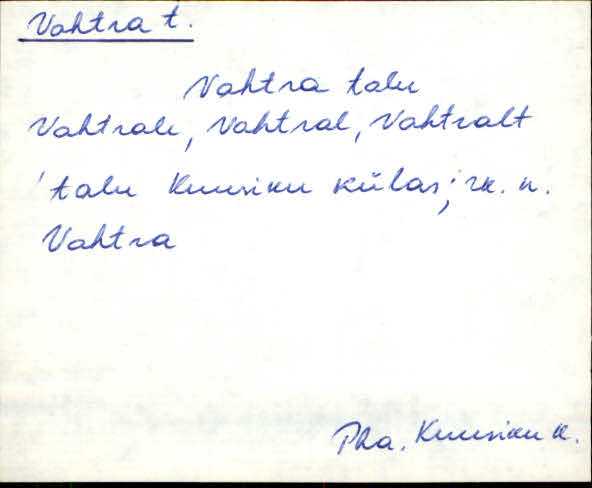 Vahtra t.
Vahtra talu
Vahtrale, Vahtral, Vahtralt
'talu Kuusiku külas; rk. n.
Vahtra
Pha. Kuusiku k.